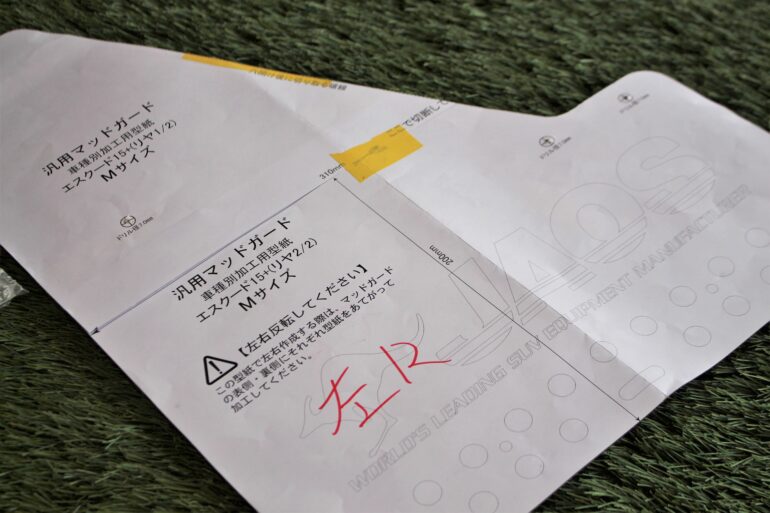 汎用マッドガード
車種別加工用型紙
エスクード15+(リヤ1/2)
Mサイズ
ドリル径7.0mm
310mm
ここで切断して
200mm
汎用マッドガード
車種別加工用型紙
エスクード15+(リヤ2/2)
Mサイズ
【左右反転してください】
この型紙で左右作成する際は、マッドガード
の表側・裏側にそれぞれ型紙をあてがって
加工してください。
左R
JAOS
WORLD'S LEADING SUV EQUIPMENT MANUFACTURER